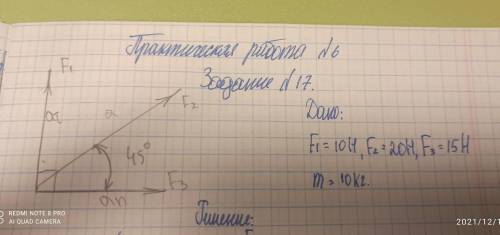 Практическая работа №6
Задание №17.
F₁
a
F₂
45°
F₃
an
Дано:
F₁=10H, F₂=20H, F₃=15H
m=10кг.
Решение:
REDMI NOTE 8 PRO
AI QUAD CAMERA
2021/12/1